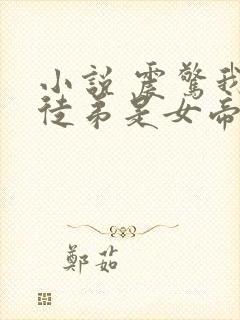 小說 震驚我
徒弟是女帝
鄭茹